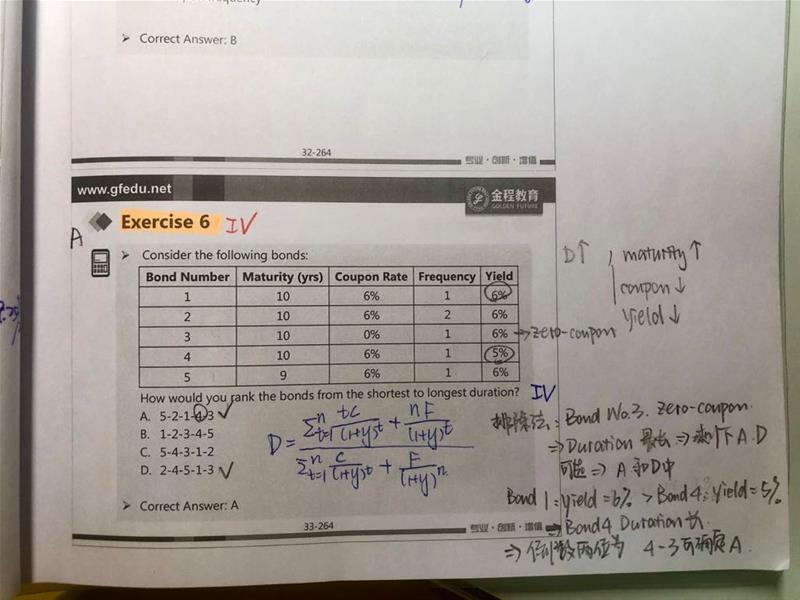 ➤ Correct Answer: B
32-264
专业·创新·增值
www.gfedu.net
金程教育
GOLDEN FUTURE
Exercise 6 IV
A
➤ Consider the following bonds:
Bond Number Maturity (yrs) Coupon Rate Frequency Yield
1 10 6% 1 6%
2 10 6% 2 6%
3 10 0% 1 6% → zero-coupon
4 10 6% 1 5%
5 9 6% 1 6%
D↑ maturity↑
coupon↓
yield↓
How would you rank the bonds from the shortest to longest duration? IV
A. 5-2-1-4-3 ✓
B. 1-2-3-4-5
C. 5-4-3-1-2
D. 2-4-5-1-3 ✓
D=
Σt=1 n tC/(1+y)t + nF/(1+y)t
Σt=1 n C/(1+y)t + F/(1+y)n
排除法: Bond No.3. zero-coupon.
⇒ Duration 最长 ⇒ 剩下 A.D
可能 ⇒ A 和D中
Bond 1: yield=6% > Bond 4: yield=5%
⇒ Bond4 Duration 长.
⇒ 倒数两位为 4-3 可确定 A.
➤ Correct Answer: A
33-264
专业·创新·增值